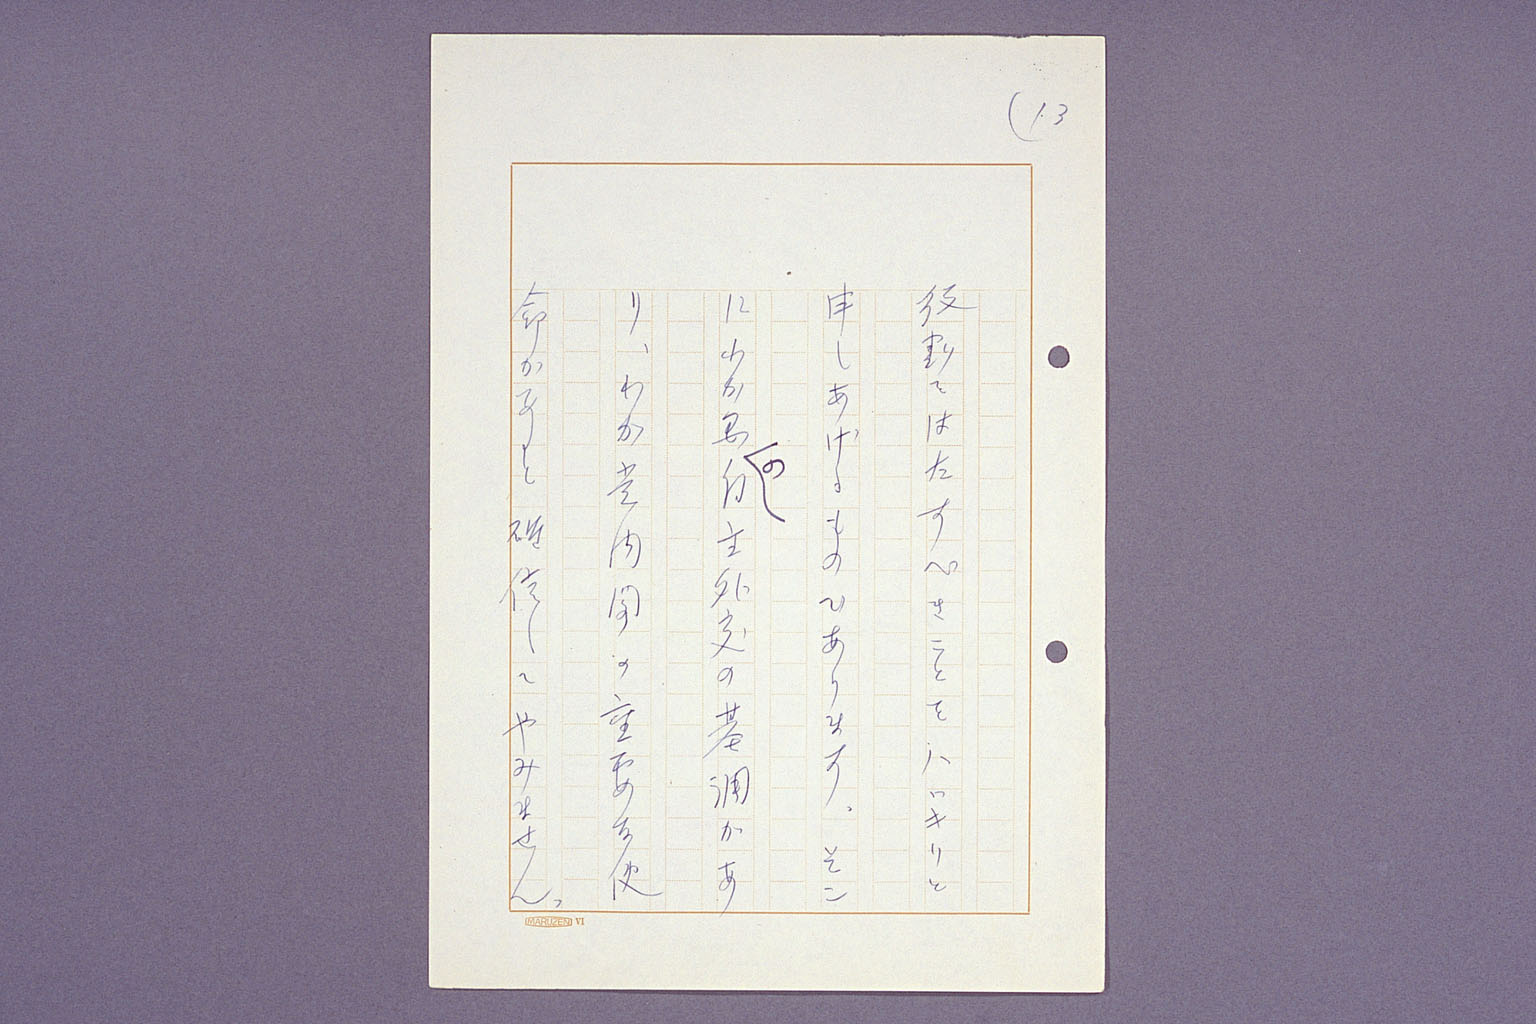 (13
役割をはたすべきことをハッキリと
申しあげるものであります。そこ
にわが国の自主外交の基調があ
り、わが党内閣の重要な使
命があると確信してやみません。
MARUZEN VI